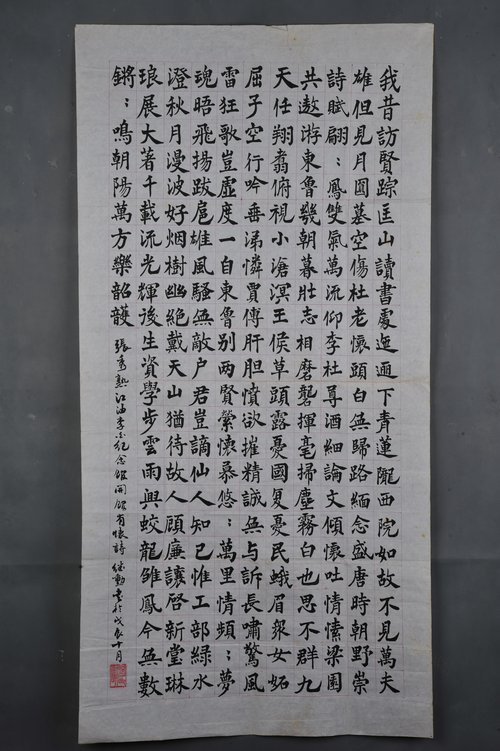 我昔訪賢踪匡山讀書處迤邐下青蓮隴西院如故不見萬夫
雄但見月圓墓空傷杜老懷頭白無歸路緬念盛唐時朝野崇
詩賦翩：鳳雙氣萬流仰李杜尊酒細論文傾懷吐情愫梁園
共遨游東魯幾朝暮壯志相磨礱揮毫掃塵霧白也思不群九
天任翔翥俯視小滄溟王侯草頭露憂國复憂民蛾眉衆女妬
屈子空行吟垂涕憐賈傅肝胆憤欲摧精誠無与訴長嘯驚風
雷狂歌豈虛度一自東魯别两賢縈懷慕悠：萬里情頻：夢
魂晤飛揚跋扈雄風騷無敵户君豈謫仙人知己惟工部綠水
澄秋月漫波好烟樹幽絶戴天山猶待故人顾廉讓啓新堂琳
琅展大著千載流光輝後生資學步雲雨興蛟龍雏鳳今無數
鏘：鳴朝陽萬方樂韶頀
張秀熟江油李白纪念館開館有懷詩 继勳書於戊辰十月